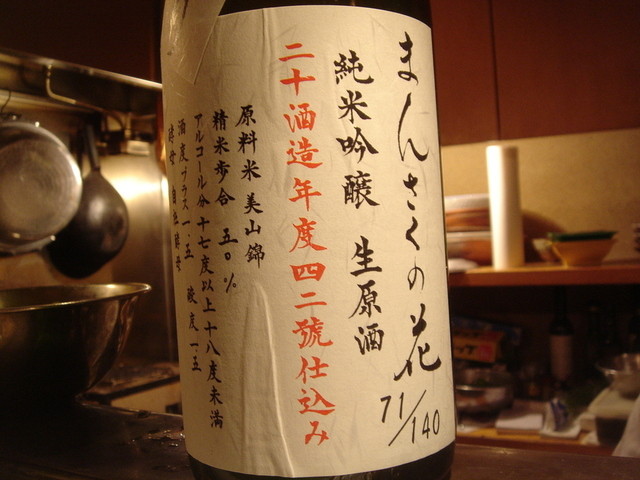 まんさくの花
71/140
純米吟醸 生原酒
二十酒造年度四二號仕込み
原料米 美山錦
精米歩合 五〇%
アルコール分 十七度以上十八度未満
酒度プラス一・五 酸度一・五
酵母 自社酵母